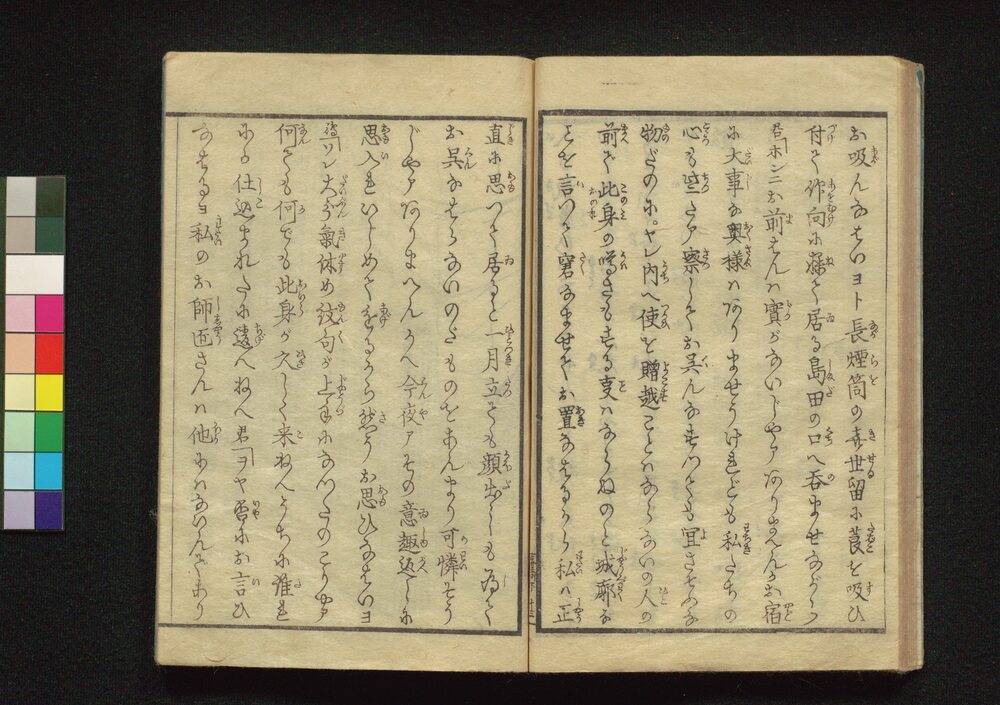 お吸んなはいヨト長煙筒の喜世留に莨を吸ひ
付て作向に寐て居る島田の口へ呑ませながら
君「ホンニお前はんハ實がないじやアありませんかお宿
に大事な奥様ハありませうけれども私たちの
心も些たア察してお呉んなすつても宜さそふな
物だのに。ヤレ内へ使を贈越ことハならないの人の
前で此身の噂さもする事ハならねのと城郭な
ことを言つて窘なませてお置なはるから私ハ正
直に思つて居ると一月立ても顔出しも為て
お呉なはらないのだものをあんまり可憐そう
じやアありませんかへ今夜アその意趣返しに
思入れいぢめてやるから然うお思ひなはいヨ
嶋「ソレ大分氣休め紋句が上手になつたのこりやア
何でも何でも此身が久しく来ねへうちに誰ぞ
にか仕込まれたに違へねへ君「ヲヤ否にお言ひ
なはるヨ私のお師匠さんハ他にハないんであり